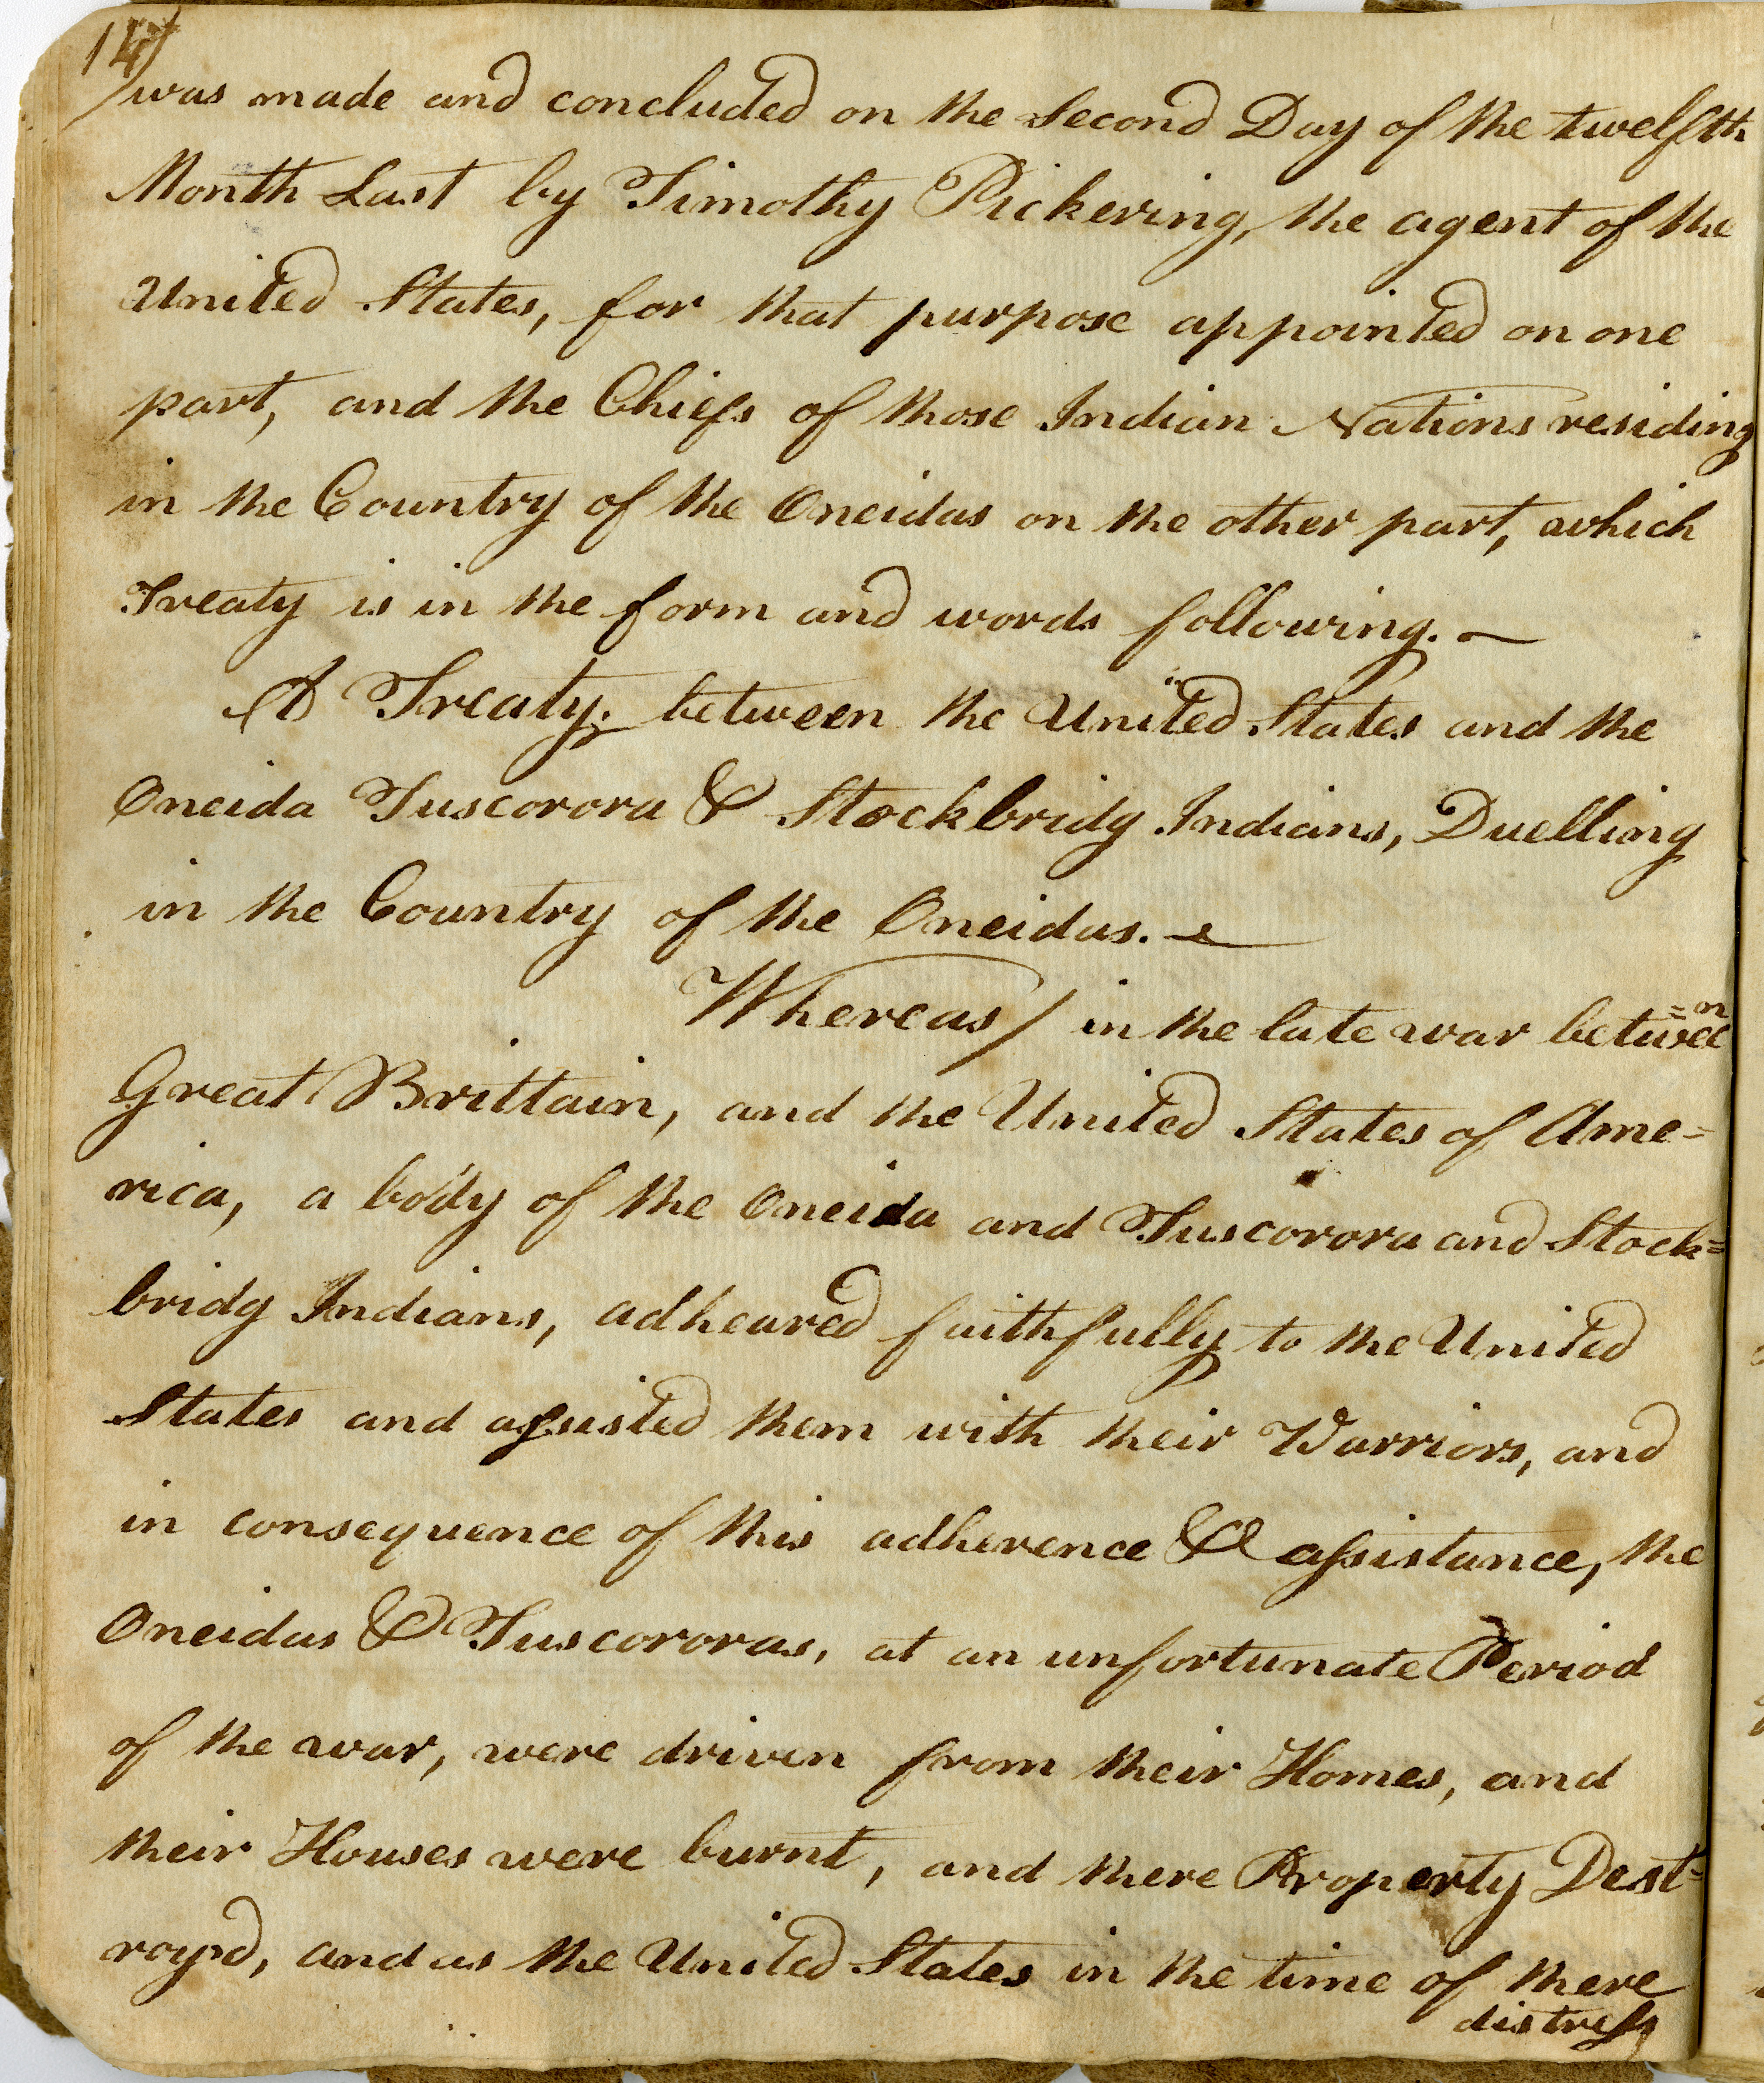 14
was made and concluded on the Second Day of the twelfth
Month Last by Timothy Pickering, the agent of the
United States, for that purpose appointed on one
part, and the Chiefs of those Indian Nations residing
in the Country of the Oneidas on the other part, which
Treaty is in the form and words following. —
A Treaty. between the United States and the
Oneida Tuscorora & Stockbridg Indians, Duelling
in the Country of the Oneidas. —
Whereas / in the late war betwee=n
Great Brittain, and the United States of Ame=
rica, a body of the Oneida and Tuscorora and Stock=
bridg Indians, adheared faithfully to the United
States and assisted them with their Warriors, and
in consequence of this adherence & assistance, the
Oneidas & Tuscororas, at an unfortunate Period
of the war, were driven from their Homes, and
their Houses were burnt, and there Property Dest=
royd, and as the United States in the time of there
distress